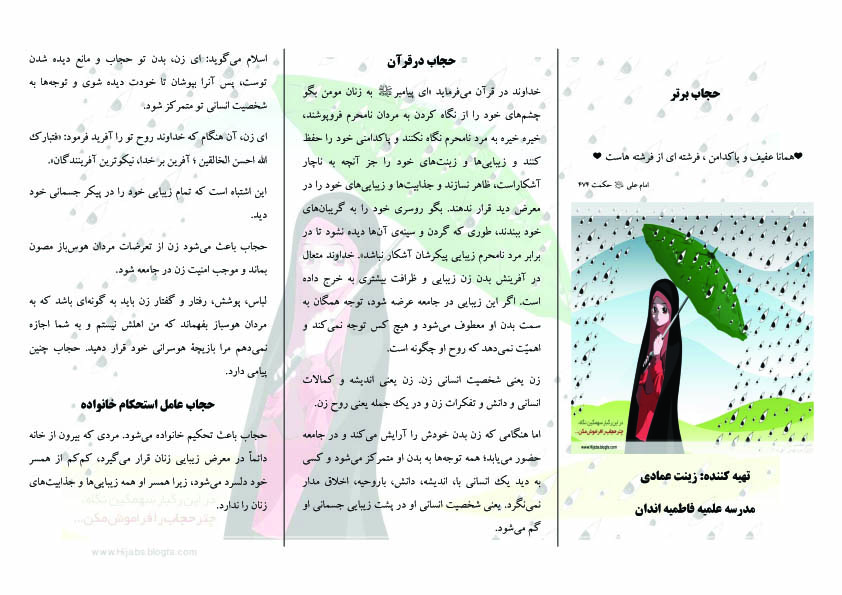 حجاب برتر
❤همانا عفیف و پاکدامن ، فرشته ای از فرشته هاست ❤
امام علی حکمت ۴۷۴
در این رگبار سهمگین نگاه،
چتر حجاب را فراموش مکن...
www.Hijabs.blogfa.com
تهیه کننده: زینت عمادی
مدرسه علمیه فاطمیه اندان
حجاب درقرآن
خداوند در قرآن می‌فرماید «ای پیامبرﷺ به زنان مومن بگو
چشم‌های خود را از نگاه کردن به مردان نامحرم فروپوشند،
خیره خیره به مرد نامحرم نگاه نکنند و پاکدامنی خود را حفظ
کنند و زیبایی‌ها و زینت‌های خود را جز آنچه به ناچار
آشکاراست، ظاهر نسازند و جذابیت‌ها و زیبایی‌های خود را در
معرض دید قرار ندهند. بگو روسری خود را به گریبان‌های
خود ببندند، طوری که گردن و سینه‌ی آن‌ها دیده نشود تا در
برابر مرد نامحرم زیبایی پیکرشان آشکار نباشد». خداوند متعال
در آفرینش بدن زن زیبایی و ظرافت بیشتری به خرج داده
است. اگر این زیبایی در جامعه عرضه شود، توجه همگان به
سمت بدن او معطوف می‌شود و هیچ کس توجه نمی‌کند و
اهمیّت نمی‌دهد که روح او چگونه است.
زن یعنی شخصیت انسانی زن. زن یعنی اندیشه و کمالات
انسانی و دانش و تفکرات زن و در یک جمله یعنی روح زن.
اما هنگامی که زن بدن خودش را آرایش می‌کند و در جامعه
حضور می‌یابد؛ همه توجه‌ها به بدن او متمرکز می‌شود و کسی
به دید یک انسانی با، اندیشه، دانش، باروحیه، اخلاق مدار
نمی‌نگرد. یعنی شخصیت انسانی او در پشت زیبایی جسمانی او
گم می‌شود.
اسلام می‌گوید: ای زن، بدن تو حجاب و مانع دیده شدن
توست، پس آنرا بپوشان تا خودت دیده شوی و توجه‌ها به
شخصیت انسانی تو متمرکز شود.
ای زن، آن هنگام که خداوند روح تو را آفرید فرمود: «فتبارک
الله احسن الخالقین ؛ آفرین بر خدا، نیکوترین آفرینندگان».
این اشتباه است که تمام زیبایی خود را در پیکر جسمانی خود
دید.
حجاب باعث می‌شود زن از تعرضات مردان هوس‌باز مصون
بماند و موجب امنیت زن در جامعه شود.
لباس، پوشش، رفتار و گفتار زن باید به گونه‌ای باشد که به
مردان هوسباز بفهماند که من اهلش نیستم و به شما اجازه
نمی‌دهم مرا بازیچهٔ هوسرانی خود قرار دهید. حجاب چنین
پیامی دارد.
حجاب عامل استحکام خانواده
حجاب باعث تحکیم خانواده می‌شود. مردی که بیرون از خانه
دائماً در معرض زیبایی زنان قرار می‌گیرد، کم‌کم از همسر
خود دلسرد می‌شود، زیرا همسر او همه زیبایی‌ها و جذابیت‌های
زنان را ندارد.
در این رگبار سهمگین نگاه،
چتر حجاب را فراموش مکن...
www.Hijabs.blogfa.com